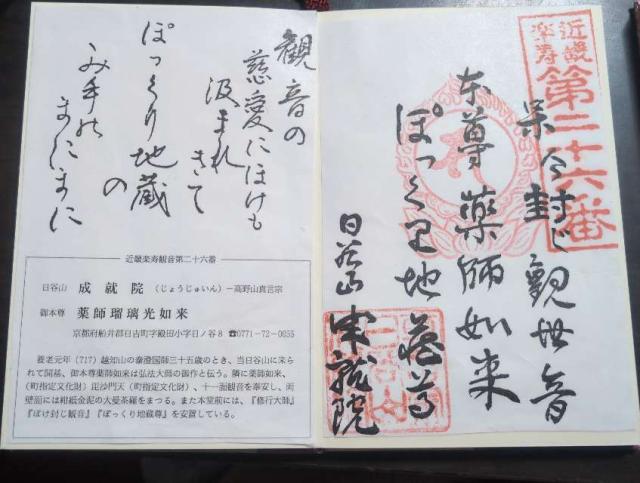 近畿
楽寿
第二十六番
呆け封じ観世音
本尊薬師如来
ぽっくり地蔵尊
日谷山 成就院
観音の
慈愛にほけも
汲まれ
きて
ぽっくり地蔵
の
み手の
まにまに
近畿楽寿観音第二十六番
日谷山 成就院(じょうじゅいん)—高野山真言宗
御本尊 薬師瑠璃光如来
京都府船井郡日吉町字殿田小字日ノ谷8 ☎0771-72-0655
養老元年(717)越知山の泰澄国師三十五歳のとき、当日谷山に来られ
て開基、御本尊薬師如来は弘法大師の御作と伝う。隣に薬師如来、
(町指定文化財)毘沙門天(町指定文化財)、十一面観音を奉安し、両
壁面には紺紙金泥の大曼荼羅をまつる。また本堂前には、『修行大師』
『ぼけ封じ観音』『ぽっくり地蔵尊』を安置している。